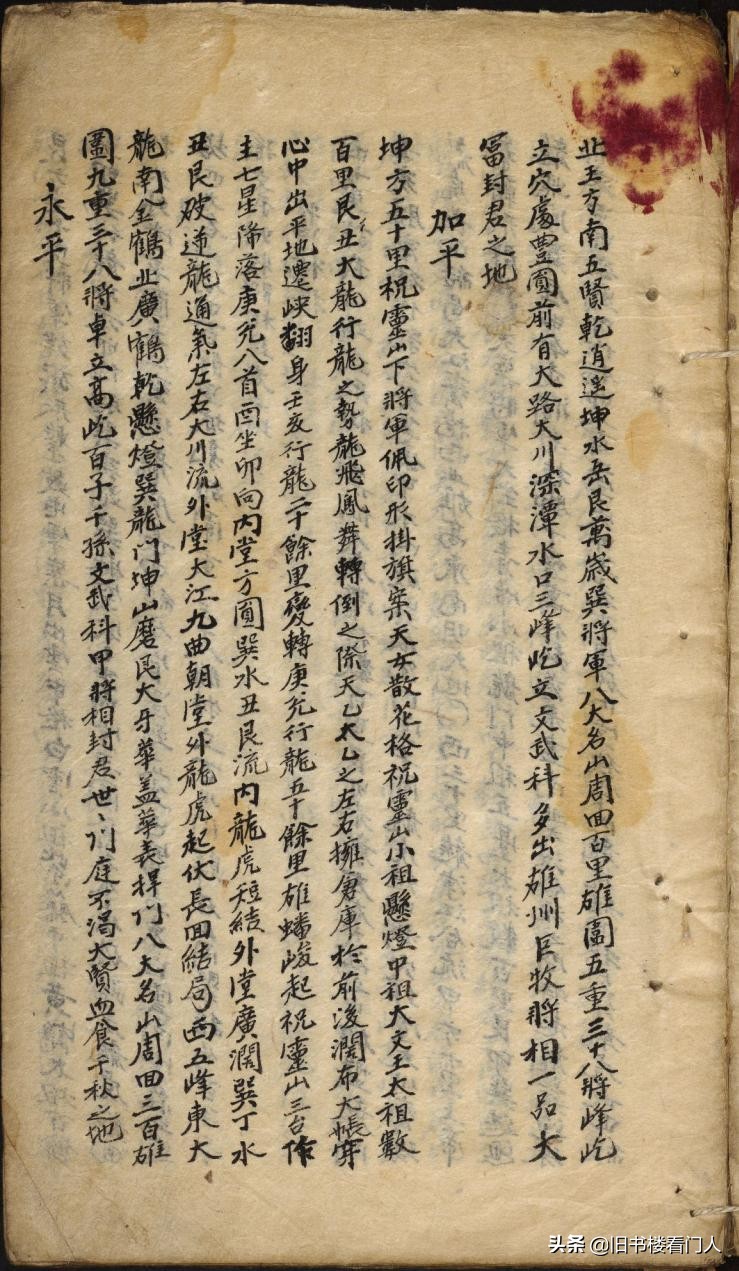 北王方南五賢乾逍遥坤水岳艮萬歲巽將軍八大名山周回百里雄圖五重三十八將峰屹
立穴處豊圓前有大路大川深潭水口三峰屹立文武科多出雄州巨牧將相一品大
冨封君之地
加平
坤方五十里祝靈山下將軍佩印形掛旗案天女散花格祝靈山小祖懸燈中祖大文王太祖數
百里艮丑大龍行龍之勢龍飛鳳舞轉倒之際天乙太乙之左右擁倉庫於前後濶布大帳穿
心中出平地遷峽翻身壬亥行龍二十餘里變轉庚兌行龍五十餘里雄蟠峻起祝靈山三台作
主七星降落庚兌八首酉坐卯向内堂方圓巽水丑艮流内龍虎短結外堂廣濶巽丁水
丑艮破逆龍通氣左右大川流外堂大江九曲朝堂外龍虎起伏長回結局西五峰東大
龍南金鶴北廣鶴乾懸燈巽龍门坤山磨艮大牙華盖華表捍门八大名山周回三百雄
圖九重三十八將卓立高屹百子千孫文武科甲將相封君世〻门庭不渴大賢血食千秋之地
永平
头条 @旧书楼看门人